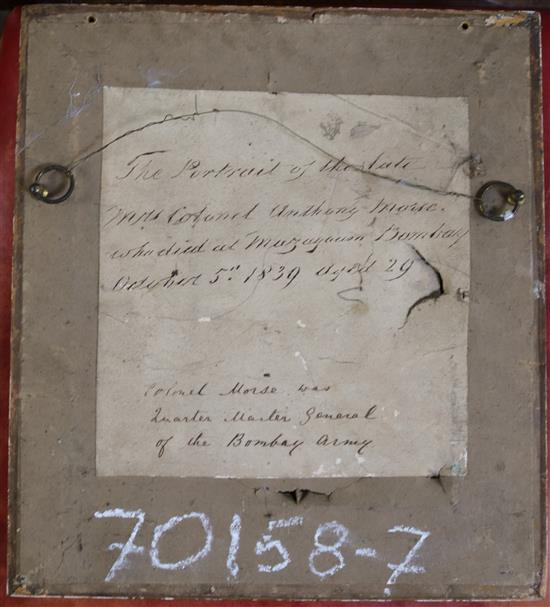 The Portrait of the late
Mrs Colonel Anthony Morse.
who died at Mazagaum Bombay
October 5th 1839 aged 29
Colonel Morse was
Quarter Master General
of the Bombay Army
70158-7